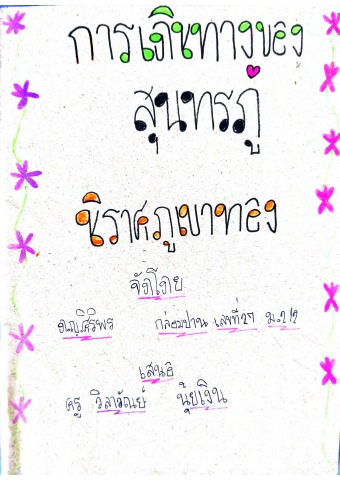 การเดินทางของ
สุนทรภู่
นิราศภูเขาทอง
จัดโดย
กล่อมปาน เลขที่27 ม.2/2
เสนอ
ครู วิลาวัณย์ นุ้ยเงิน